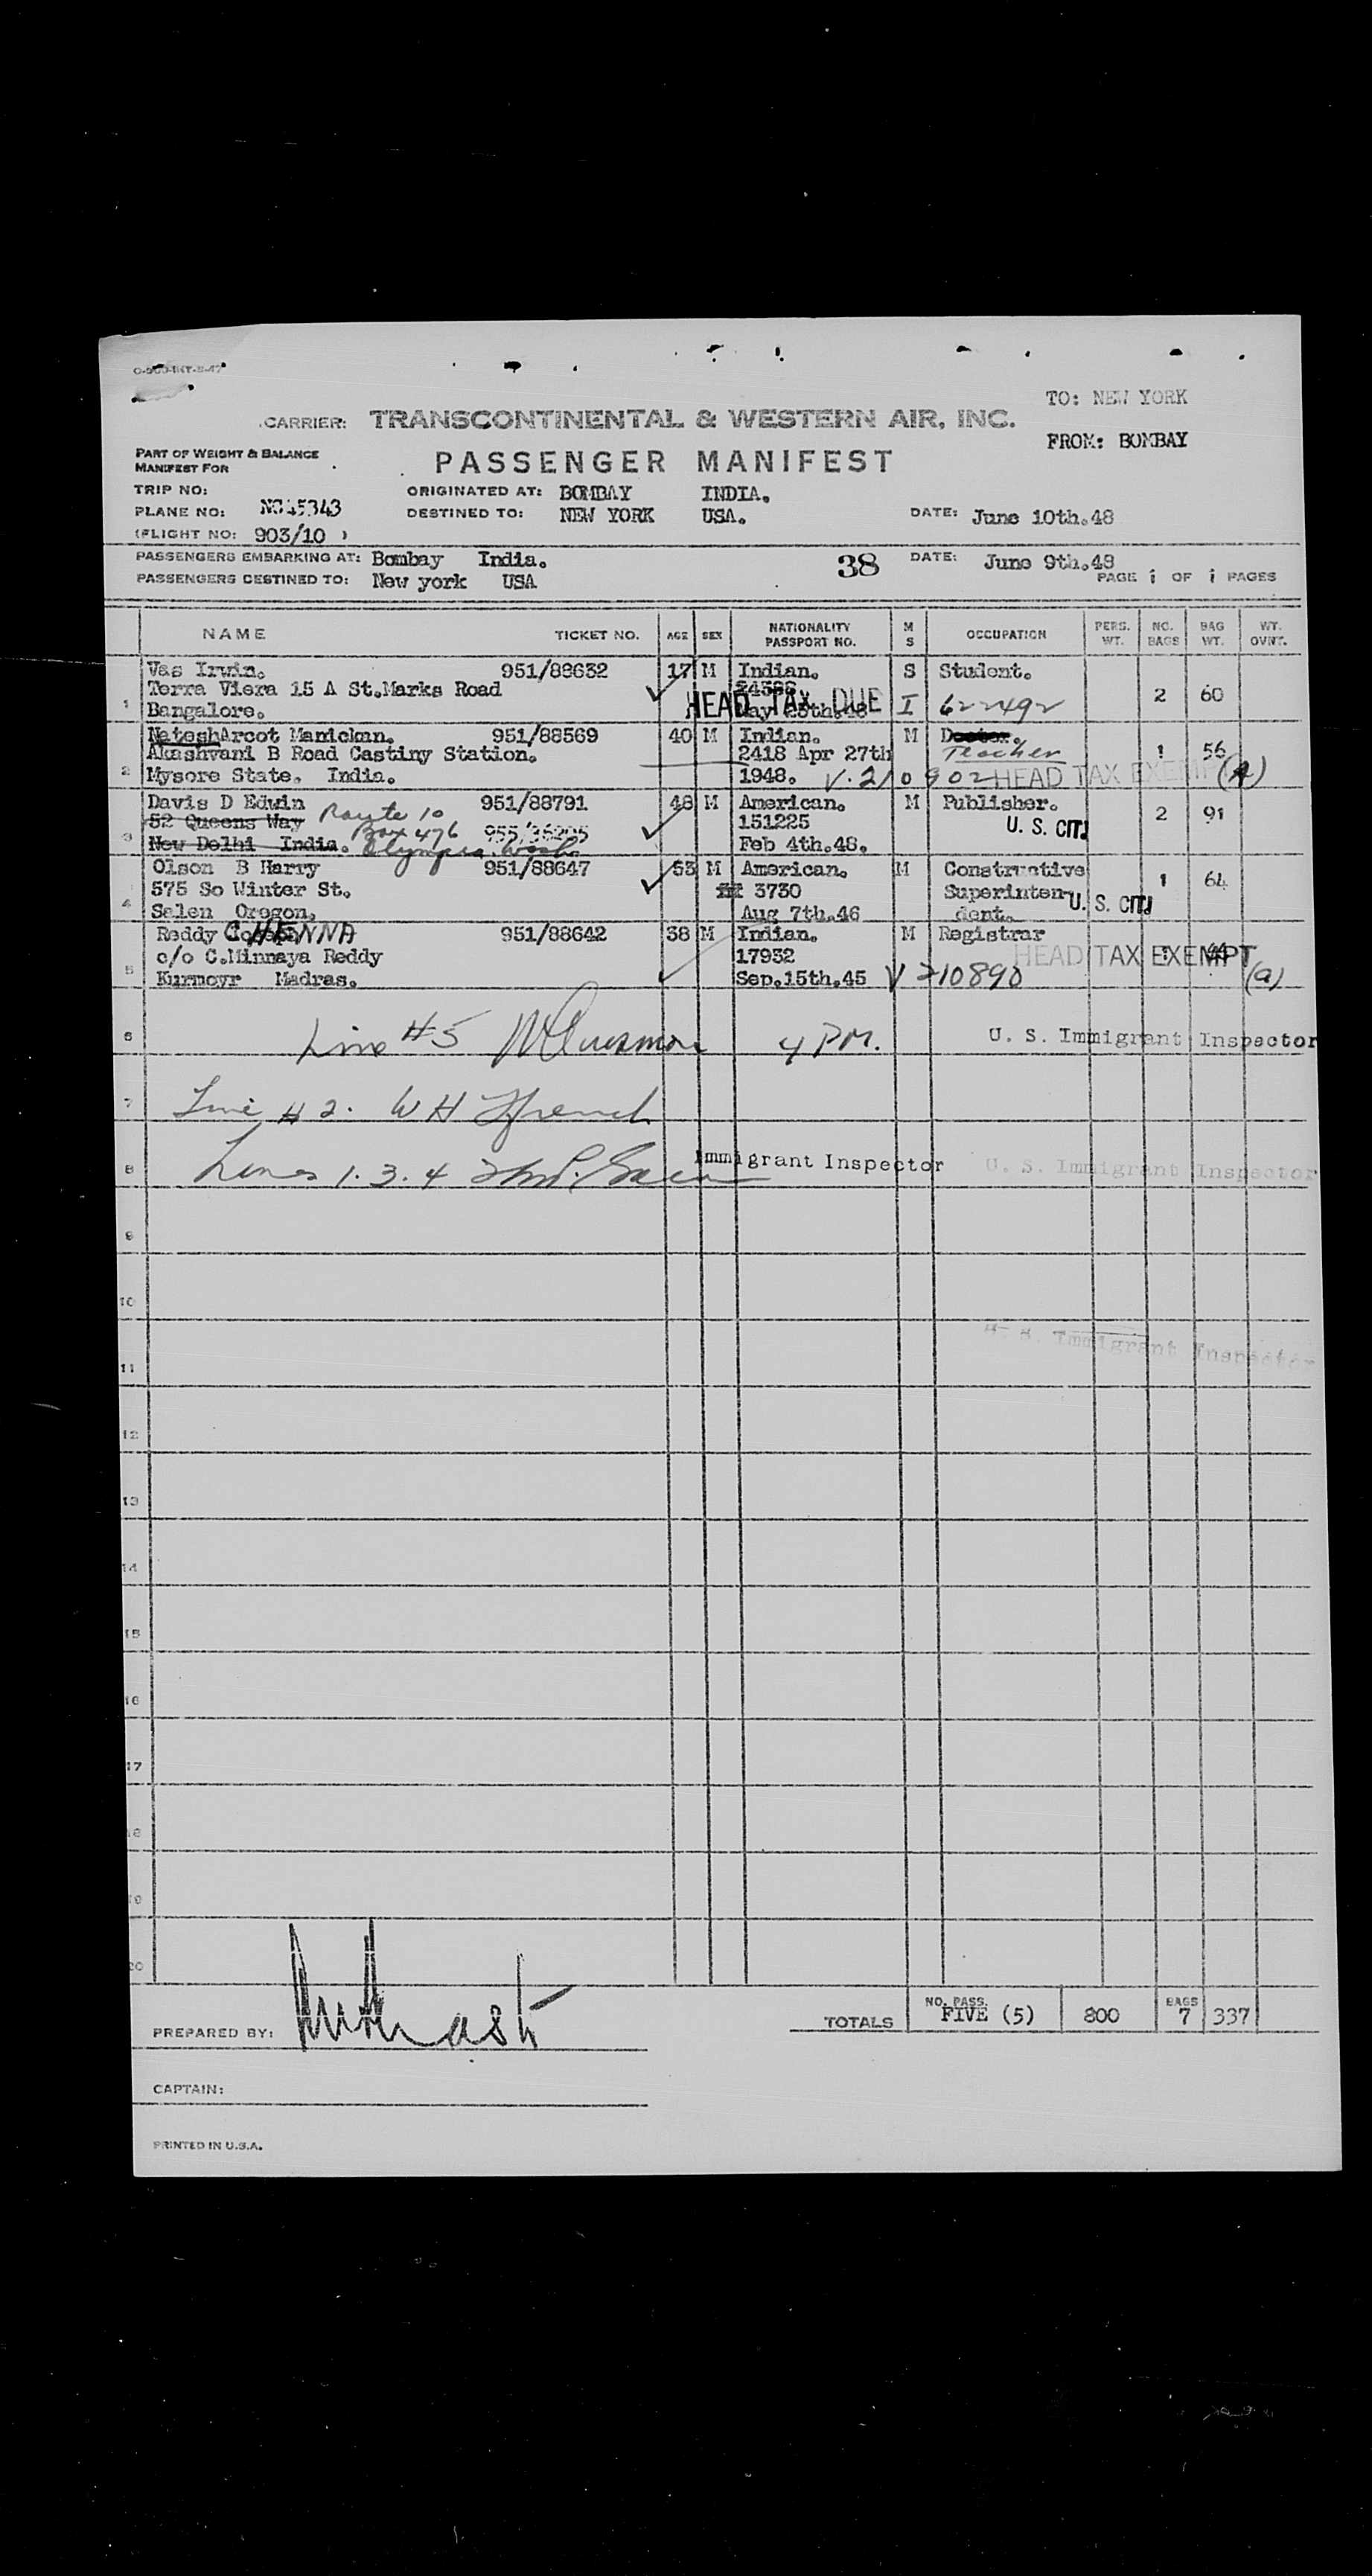 TO: NEW YORK
CARRIER: TRANSCONTINENTAL & WESTERN AIR, INC.
FROM: BOMBAY
PART OF WEIGHT & BALANCE
MANIFEST FOR
PASSENGER MANIFEST
TRIP NO:
ORIGINATED AT: BOMBAY INDIA.
PLANE NO: NC45343
DESTINED TO: NEW YORK USA.
DATE: June 10th.48
(FLIGHT NO: 903/10 )
PASSENGERS EMBARKING AT: Bombay India.
38
DATE: June 9th.48
PASSENGERS DESTINED TO: New york USA
PAGE 1 OF 1 PAGES
NAME TICKET NO. AGE SEX NATIONALITY PASSPORT NO. M S OCCUPATION PERS. WT. NO. BAGS BAG WT. WT. OVNT.
1
Vas Irwin. 951/88632 17 M Indian. S Student.
Terra Viera 15 A St.Marks Road HEAD TAX DUE I 622492 2 60
Bangalore.
2
NateshArcot Manickam. 951/88569 40 M Indian. M Doctor.
Akashvani B Road Castiny Station. 2418 Apr 27th Teacher 1 56
Mysore State. India. 1948. V. 210902 HEAD TAX EXEMPT (A)
3
Davis D Edwin 951/88791 48 M American. M Publisher.
52 Queens Way Route 10 151225 U. S. CIT. 2 91
New Delhi India. Box 476 955/36205 Feb 4th.48.
Olympia Wash.
4
Olson B Harry 951/88647 53 M American. M Constructive
575 So Winter St. 3730 Superinten- U. S. CIT. 1 64
Salen Oregon. Aug 7th.46 dent.
5
Reddy CHENNA 951/88642 38 M Indian. M Registrar
c/o C.Minnaya Reddy 17932 HEAD TAX EXEMPT
Kurnoyr Madras. Sep.15th.45 V 210890 (a)
6
Line #5 4 PM. U. S. Immigrant Inspector
7
Line # 2. W H French
8
Lines 1.3.4 Immigrant Inspector U. S. Immigrant Inspector
9
10
U. S. Immigrant Inspector
11
12
13
14
15
16
17
18
19
20
TOTALS NO. PASS. FIVE (5) 800 BAGS 7 337
PREPARED BY:
CAPTAIN:
PRINTED IN U.S.A.